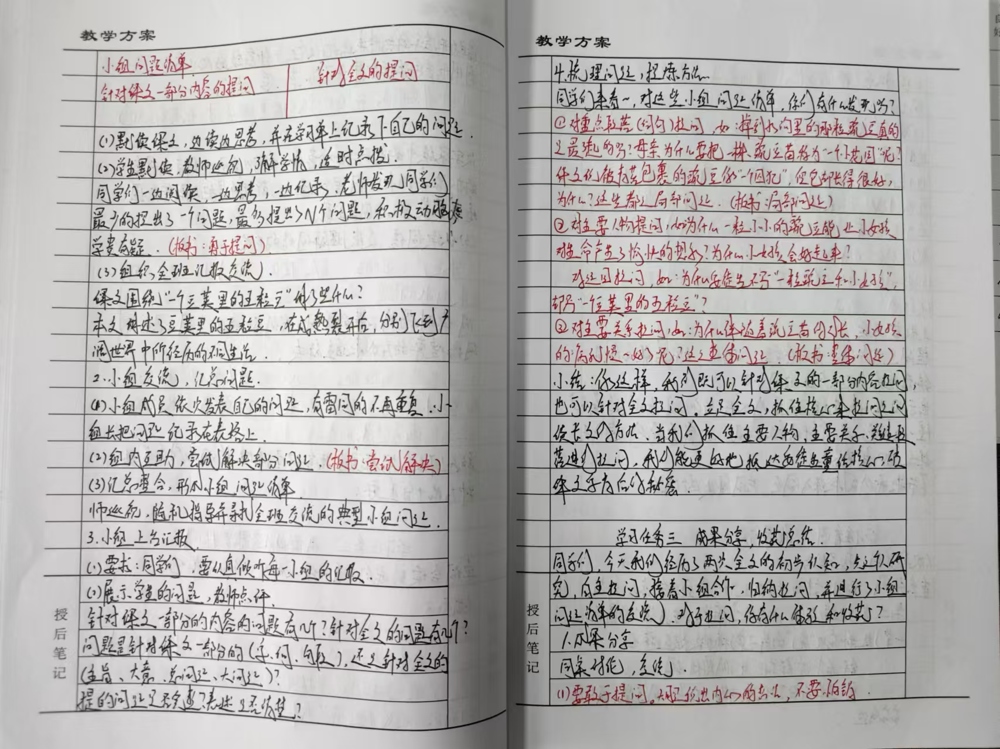 教学方案
小组问题清单
针对课文一部分内容的提问 针对全文的提问
(1)默读课文,边读边思考,并在学习单上记录下自己的问题。
(2)学生默读,教师巡视,了解学情,适时点拨。
同学们一边阅读,一边思考,一边记录。老师发现同学们
最少的提出了一个问题,最多提出了N个问题,积极动脑
学贵有疑。(板书:勇于提问)
(3)组织全班汇报交流。
课文围绕“一个豆荚里的五粒豆”写了些什么?
本文讲述了豆荚里的五粒豆,在成熟裂开后,分别飞到广
阔世界中所经历的不同生活。
2.小组交流,汇总问题。
(1)小组成员依次发表自己的问题,有雷同的不再重复,小
组长把问题记录在表格上。
(2)组内互助,尝试解决部分问题。(板书:尝试解决)
(3)汇总整合,形成小组问题清单
师巡视,随机指导并寻找全班交流的典型小组问题。
3.小组上台汇报。
(1)要求:同学们,要认真倾听每一小组的汇报。
(2)展示学生的问题,教师点评。
针对课文一部分的内容的问题有几个?针对全文的问题有几个?
问题是针对课文一部分的(字、词、句段),还是针对全文的
(主旨、大意、总问题、大问题)?
提的问题是否合适?表述是否清楚?
授后笔记
教学方案
4.梳理问题,提炼方法。
同学们来看一看,对这些小组问题清单,你们有什么发现吗?
①对重点段落(词句)提问,如:掉到水沟里的那粒豌豆真的
是最了不起的吗?母亲为什么要把一株豌豆苗称为“一个小花园”呢?
什么叫被青苔包裹的豌豆像“一个囚犯”,但它却长得很好,
为什么?这些都是局部问题。(板书:局部问题)
②对主要人物提问,如:为什么一粒小小的豌豆能让小女孩
对生命产生了愉快的想法?为什么小女孩会好起来?
对题目提问,如:为什么安徒生不写“一粒豌豆和小女孩”,
却写“一个豆荚里的五粒豆”?
③对主要关系提问,如:为什么伴随着豌豆苗的成长,小女孩
的病就慢慢好了呢?这是整体问题。(板书:整体问题)
小结:像这样,我们既可以针对课文的一部分内容提问,
也可以针对全文提问。立足全文,抓住核心来提问题是
读长文的方法。当我们抓住主要人物,主要关系,关键段
落进行提问,我们就能更好地抵达安徒生童话核心,破
译文字背后的秘密。
学习任务三 成果分享,收获总结
同学们,今天我们经历了两次全文的初步认知,专心研
究,自主提问,接着小组合作,归纳提问,并进行了小组
问题清单的交流。对于提问,你有什么体验和收获了?
1.成果分享
同桌讨论,交流
(1)要敢于提问,大胆说出内心的想法,不要怕错。
授后笔记